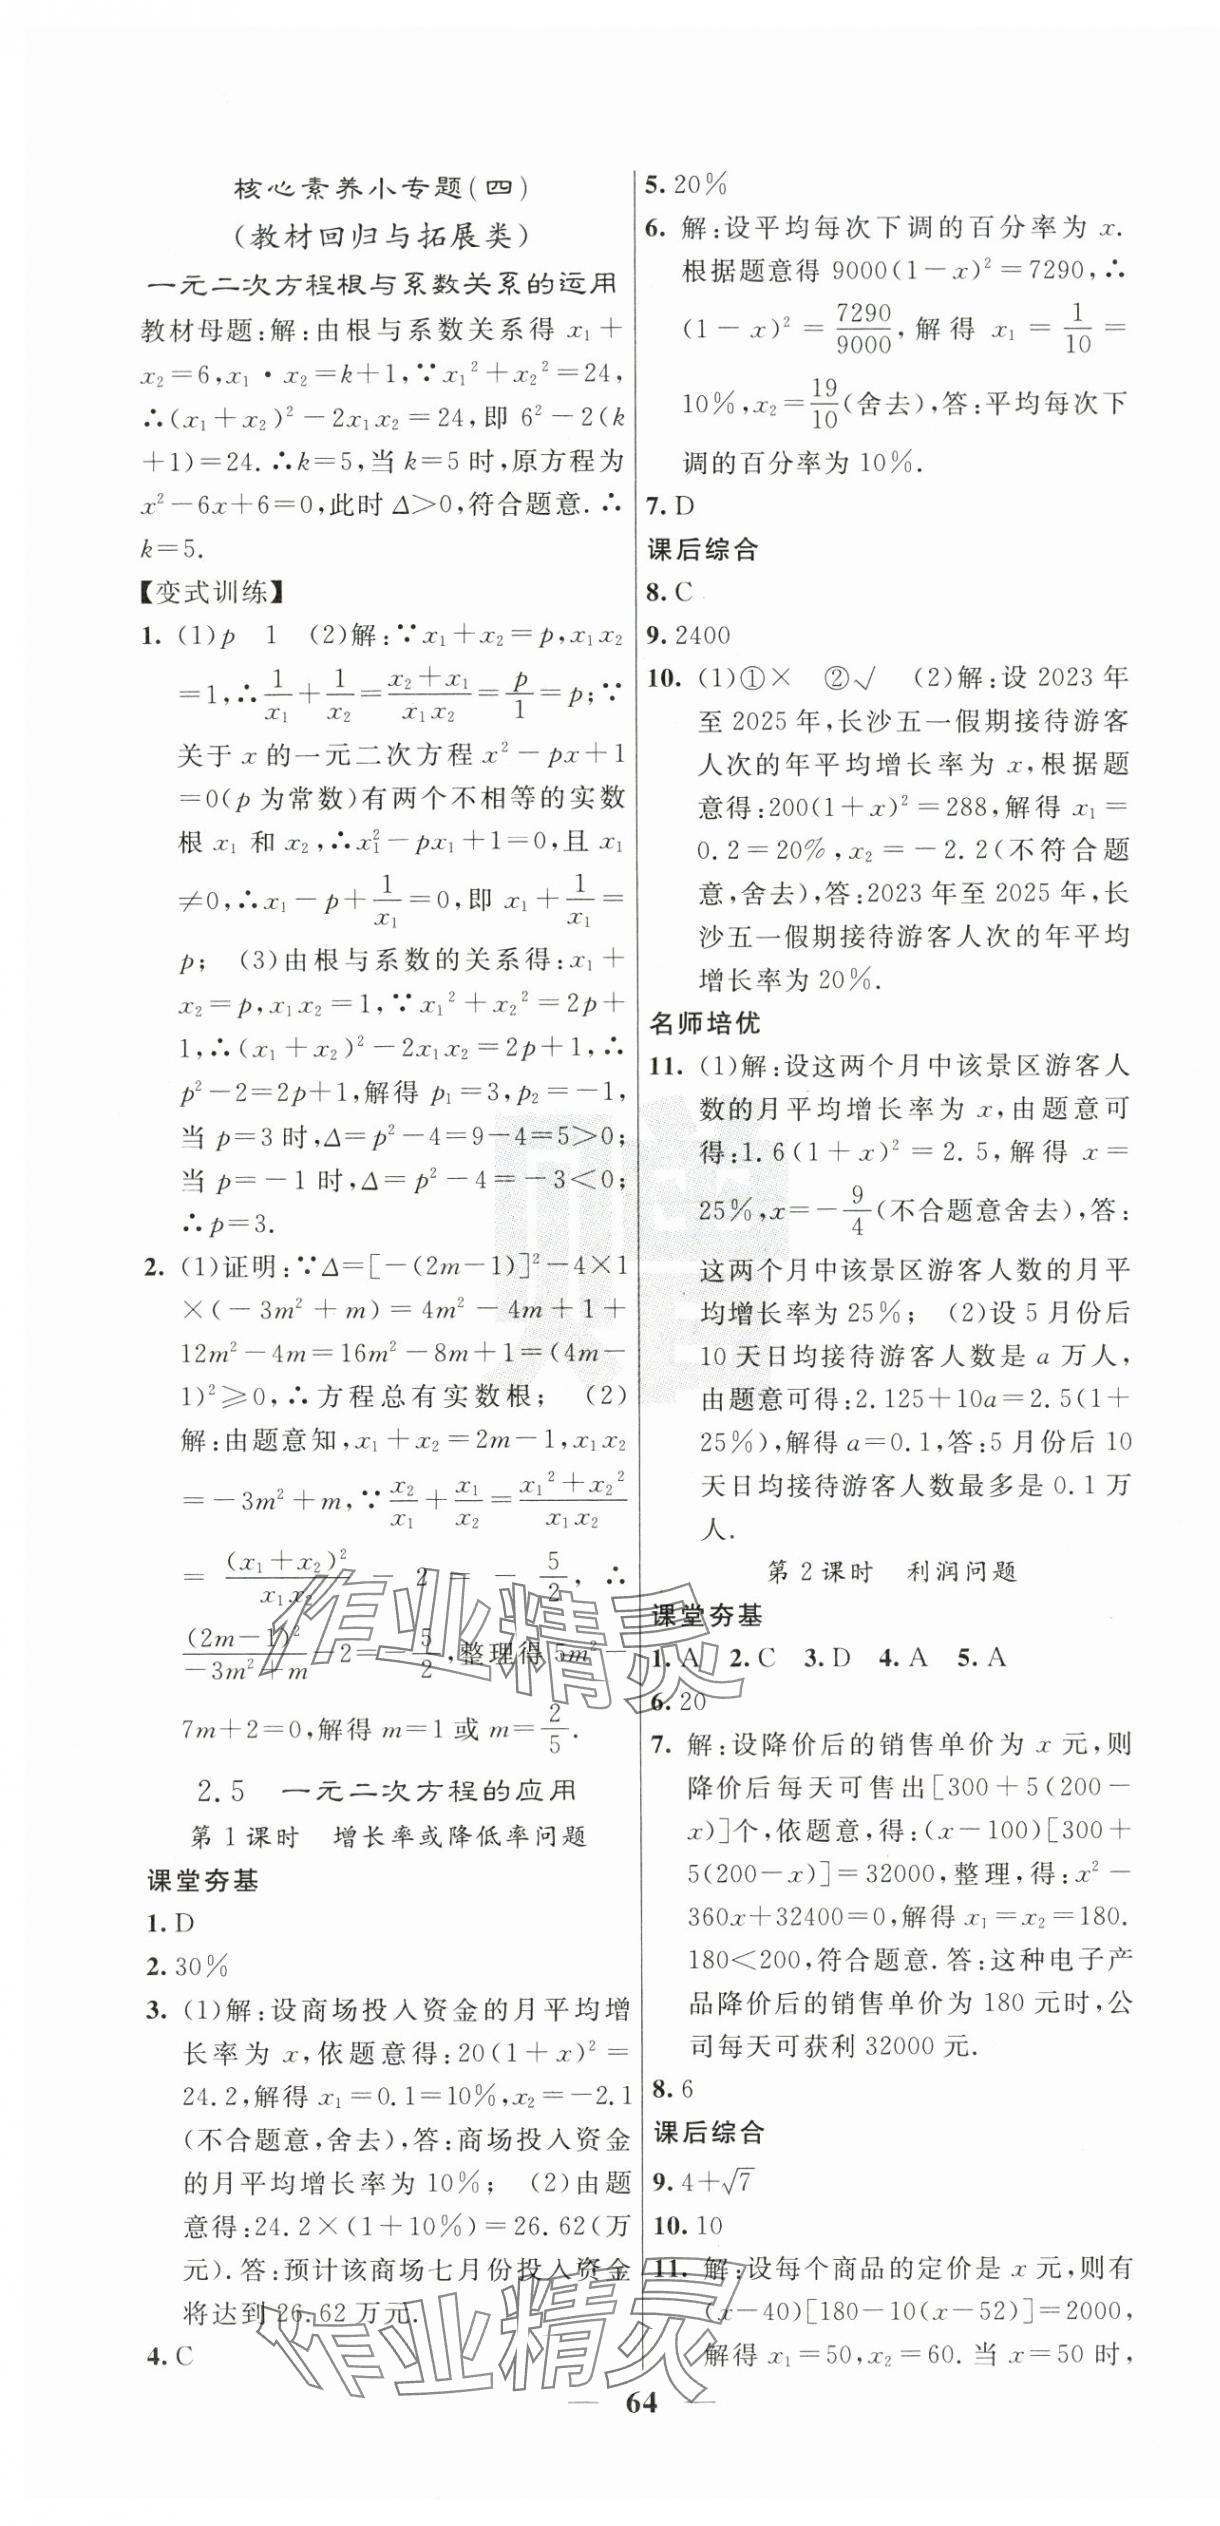 核心素养小专题(四)
(教材回归与拓展类)
一元二次方程根与系数关系的运用
教材母题:解:由根与系数关系得 x₁+
x₂=6,x₁·x₂=k+1,∵x₁²+x₂²=24,
∴(x₁+x₂)²-2x₁x₂=24,即 6²-2(k
+1)=24.∴k=5,当 k=5 时,原方程为
x²-6x+6=0,此时 Δ>0,符合题意.∴
k=5.
【变式训练】
1. (1)p 1 (2)解:∵x₁+x₂=p,x₁x₂
=1,∴1/x₁+1/x₂=(x₂+x₁)/(x₁x₂)=p/1=p;∵
关于 x 的一元二次方程 x²-px+1
=0(p 为常数)有两个不相等的实数
根 x₁ 和 x₂,∴x₁²-px₁+1=0,且 x₁
≠0,∴x₁-p+1/x₁=0,即 x₁+1/x₁=
p; (3)由根与系数的关系得:x₁+
x₂=p,x₁x₂=1,∵x₁²+x₂²=2p+
1,∴(x₁+x₂)²-2x₁x₂=2p+1,∴
p²-2=2p+1,解得 p₁=3,p₂=-1,
当 p=3 时,Δ=p²-4=9-4=5>0;
当 p=-1 时,Δ=p²-4=-3<0;
∴p=3.
2. (1)证明:∵Δ=[-(2m-1)]²-4×1
×(-3m²+m)=4m²-4m+1+
12m²-4m=16m²-8m+1=(4m-
1)²≥0,∴方程总有实数根; (2)
解:由题意知,x₁+x₂=2m-1,x₁x₂
=-3m²+m,∵x₂/x₁+x₁/x₂=(x₁²+x₂²)/(x₁x₂)
=(x₁+x₂)²/(x₁x₂)-2=-5/2,∴
(2m-1)²/(-3m²+m)-2=-5/2,整理得 5m²-
7m+2=0,解得 m=1 或 m=2/5.
2.5 一元二次方程的应用
第 1 课时 增长率或降低率问题
课堂夯基
1. D
2. 30%
3. (1)解:设商场投入资金的月平均增
长率为 x,依题意得:20(1+x)²=
24.2,解得 x₁=0.1=10%,x₂=-2.1
(不合题意,舍去),答:商场投入资金
的月平均增长率为 10%; (2)由题
意得:24.2×(1+10%)=26.62(万
元).答:预计该商场七月份投入资金
将达到 26.62 万元.
4. C
5. 20%
6. 解:设平均每次下调的百分率为 x.
根据题意得 9000(1-x)²=7290,∴
(1-x)²=7290/9000,解得 x₁=1/10=
10%,x₂=19/10(舍去),答:平均每次下
调的百分率为 10%.
7. D
课后综合
8. C
9. 2400
10. (1)①× ②√ (2)解:设 2023 年
至 2025 年,长沙五一假期接待游客
人次的年平均增长率为 x,根据题
意得:200(1+x)²=288,解得 x₁=
0.2=20%,x₂=-2.2(不符合题
意,舍去),答:2023 年至 2025 年,长
沙五一假期接待游客人次的年平均
增长率为 20%.
名师培优
11. (1)解:设这两个月中该景区游客人
数的月平均增长率为 x,由题意可
得:1.6(1+x)²=2.5,解得 x=
25%,x=-9/4(不合题意舍去),答:
这两个月中该景区游客人数的月平
均增长率为 25%; (2)设 5 月份后
10 天日均接待游客人数是 a 万人,
由题意可得:2.125+10a=2.5(1+
25%),解得 a=0.1,答:5 月份后 10
天日均接待游客人数最多是 0.1 万
人.
第 2 课时 利润问题
课堂夯基
1. A 2. C 3. D 4. A 5. A
6. 20
7. 解:设降价后的销售单价为 x 元,则
降价后每天可售出[300+5(200-
x)]个,依题意,得:(x-100)[300+
5(200-x)]=32000,整理,得:x²-
360x+32400=0,解得 x₁=x₂=180.
180<200,符合题意.答:这种电子产
品降价后的销售单价为 180 元时,公
司每天可获利 32000 元.
8. 6
课后综合
9. 4+√7
10. 10
11. 解:设每个商品的定价是 x 元,则有
(x-40)[180-10(x-52)]=2000,
解得 x₁=50,x₂=60.当 x=50 时,
64
作业精灵
作业精灵